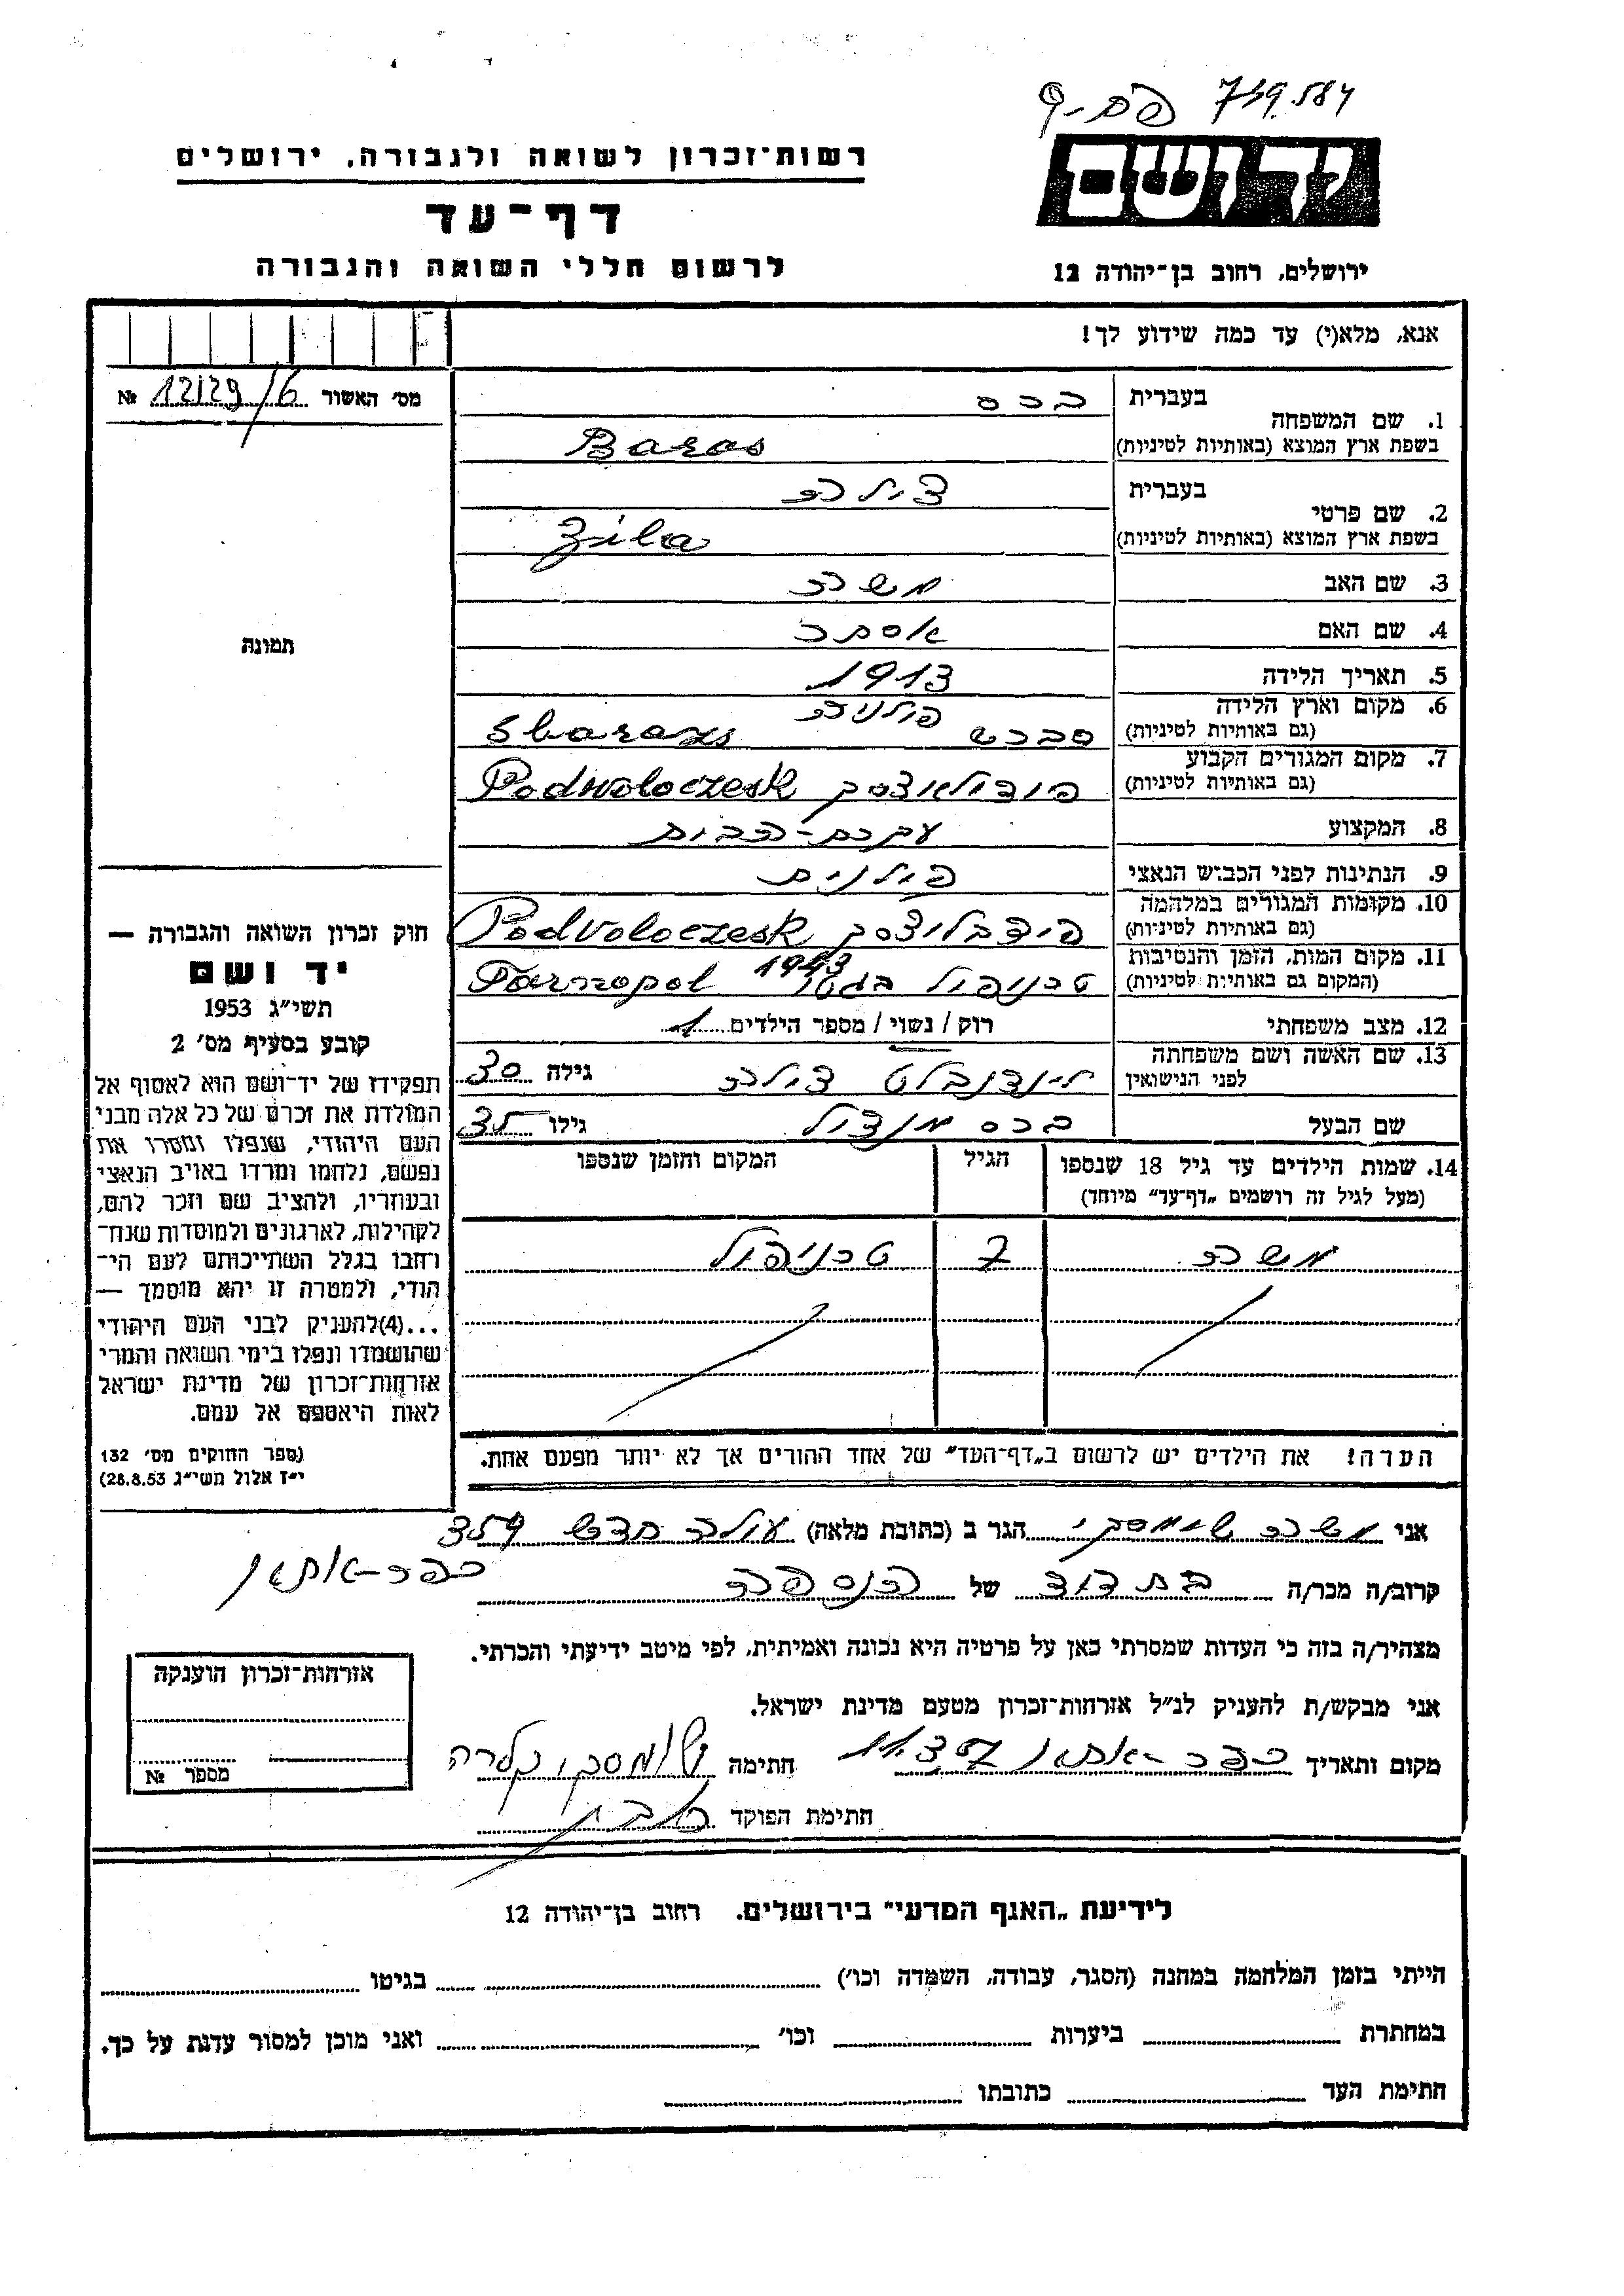 739.584
רשות־זכרון לשואה ולגבורה, ירושלים
יד ושם
דף־עד
לרשום חללי השואה והגבורה
ירושלים, רחוב בן־יהודה 12
אנא, מלא(י) עד כמה שידוע לך!
מס׳ האשור 12129/6 №
1. שם המשפחה
בעברית ברס
בשפת ארץ המוצא (באותיות לטיניות) Baras
2. שם פרטי
בעברית צילה
בשפת ארץ המוצא (באותיות לטיניות) Zila
3. שם האב משה
4. שם האם אסתר
5. תאריך הלידה 1913
6. מקום וארץ הלידה פולניה
(גם באותיות לטיניות) סברש Sbarazs
7. מקום המגורים הקבוע
(גם באותיות לטיניות) Podwoloczesk
8. המקצוע עקרת־הבית
9. הנתינות לפני הכבוש הנאצי פולנית
10. מקומות המגורים במלחמה
(גם באותיות לטיניות) Podvoloczesk
11. מקום המות, הזמן והנסיבות
(המקום גם באותיות לטיניות) טרניפול בגטו 1943 Tarnopol
12. מצב משפחתי רוק / נשוי / מספר הילדים 1
13. שם האשה ושם משפחתה
לפני הנישואין לינדנבלט צילה גילה 30
שם הבעל ברס מנדול גילו 35
14. שמות הילדים עד גיל 18 שנספו
(מעל לגיל זה רושמים „דף־עד" מיוחד)
הגיל
המקום והזמן שנספו
משה 7 טרניפול
הערה! את הילדים יש לרשום ב„דף־העד" של אחד ההורים אך לא יותר מפעם אחת.
תמונה
חוק זכרון השואה והגבורה —
יד ושם
תשי״ג 1953
קובע בסעיף מס׳ 2
תפקידו של יד־ושם הוא לאסוף אל
המולדת את זכרם של כל אלה מבני
העם היהודי, שנפלו ומסרו את
נפשם, נלחמו ומרדו באויב הנאצי
ובעוזריו, ולהציב שם וזכר להם,
לקהילות, לארגונים ולמוסדות שנח־
רחבו בגלל השתייכותם לעם הי־
הודי, ולמטרה זו יהא מוסמך —
...(4)להעניק לבני העם היהודי
שהושמדו ונפלו בימי השואה והמרי
אזרחות־זכרון של מדינת ישראל
לאות היאספם אל עמם.
(ספר החוקים מס׳ 132
י״ז אלול תשי״ג 28.8.53)
אני הגר ב (כתובת מלאה) עולה חדש 359
כפר־אתא
קרוב/ה מכר/ה בת דוד של הנספה
מצהיר/ה בזה כי העדות שמסרתי כאן על פרטיה היא נכונה ואמיתית, לפי מיטב ידיעתי והכרתי.
אני מבקש/ת להעניק לנ״ל אזרחות־זכרון מטעם מדינת ישראל.
מקום ותאריך כפר־אתא 11.3.57 חתימה
חתימת הפוקד
אזרחות־זכרון הוענקה
מספר №
לידיעת „האגף המדעי" בירושלים. רחוב בן־יהודה 12
הייתי בזמן המלחמה במחנה (הסגר, עבודה, השמדה וכו׳) בגיטו
במחתרת ביערות וכו׳ ואני מוכן למסור עדות על כך.
חתימת העד כתובתו